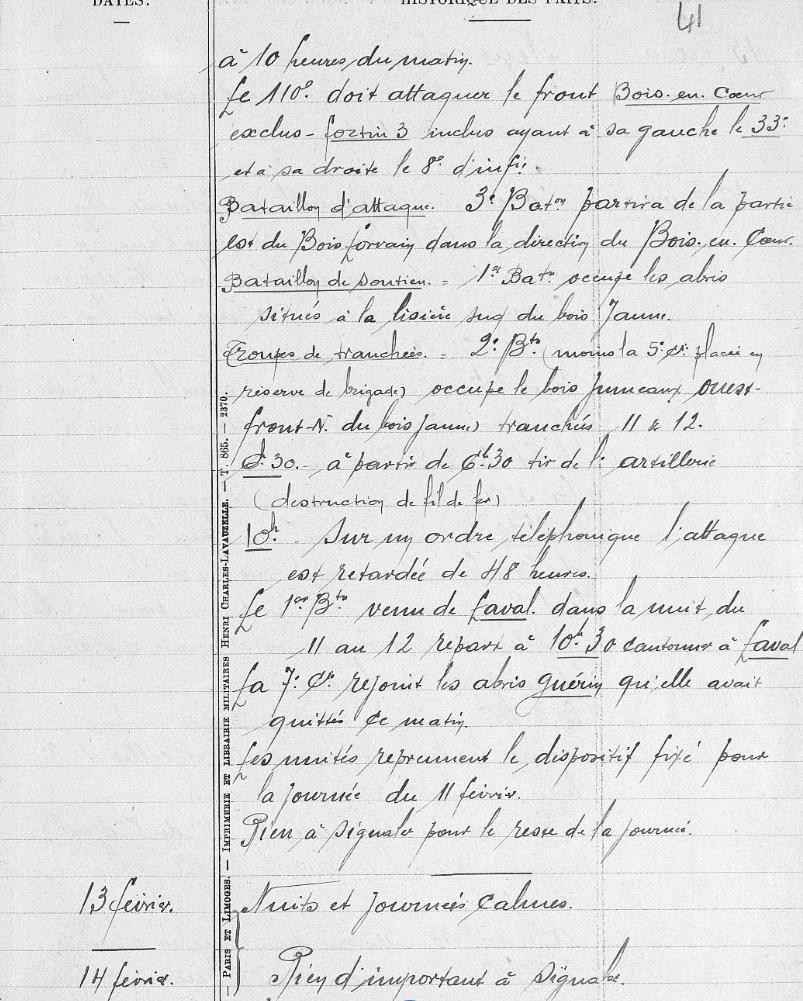 DATES.
HISTORIQUE DES FAITS.
41
à 10 heures du matin.
Le 110e doit attaquer le front Bois. en. Cœur
exclus - fortin 3 inclus ayant à sa gauche le 33e
et à sa droite le 8e d'infie.
Bataillon d'attaque. 3e Baton partira de la partie
est du Bois Lorrain dans la direction du Bois. en. Cœur.
Bataillon de soutien. = 1er Baton occupe les abris
situés à la lisière sud du bois Jaune.
Troupes de tranchées. = 2e Bton (moins la 5e Cie placée en
réserve de brigade) occupe le bois Jumeaux ouest-
front-N. du bois jaune) tranchées 11 & 12.
30. - à partir de 6h30 tir de l'artillerie
(destruction de fil de fer)
10h. Sur un ordre téléphonique l'attaque
est retardée de 48 heures.
Le 1er Bton venu de Laval dans la nuit du
11 au 12 repart à 10h.30 cantonner à Laval
La 7e Cie rejoint les abris Guérin qu'elle avait
quittés ce matin.
Les unités reprennent le dispositif fixé pour
la journée du 11 février.
Rien à signaler pour le reste de la journée.
13 février. Nuits et Journées Calmes.
14 février. Rien d'important à signaler.
— PARIS ET LIMOGES. — IMPRIMERIE ET LIBRAIRIE MILITAIRES HENRI CHARLES-LAVAUZELLE. — T. 865. — 2370.